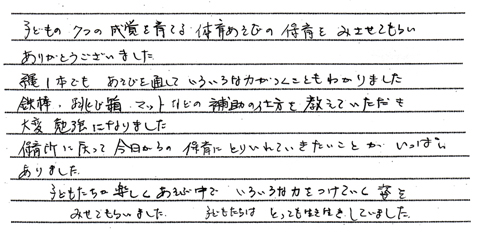 子どもの 7つの 感覚を育てる 体育あそびの 保育を みさせてもらい
ありがとうございました
縄1本でも あそびを通して いろいろな力がつくこともわかりました
鉄棒・跳び箱・マットなどの 補助の仕方を 教えていただき
大変 勉強になりました
保育所に戻って 今日からの 保育に とりいれていきたいことが いっぱい
ありました
子どもたちが 楽しく あそび中で いろいろな力をつけていく 姿を
みせてもらいました。 子どもたちは とっても生き生きしていました。